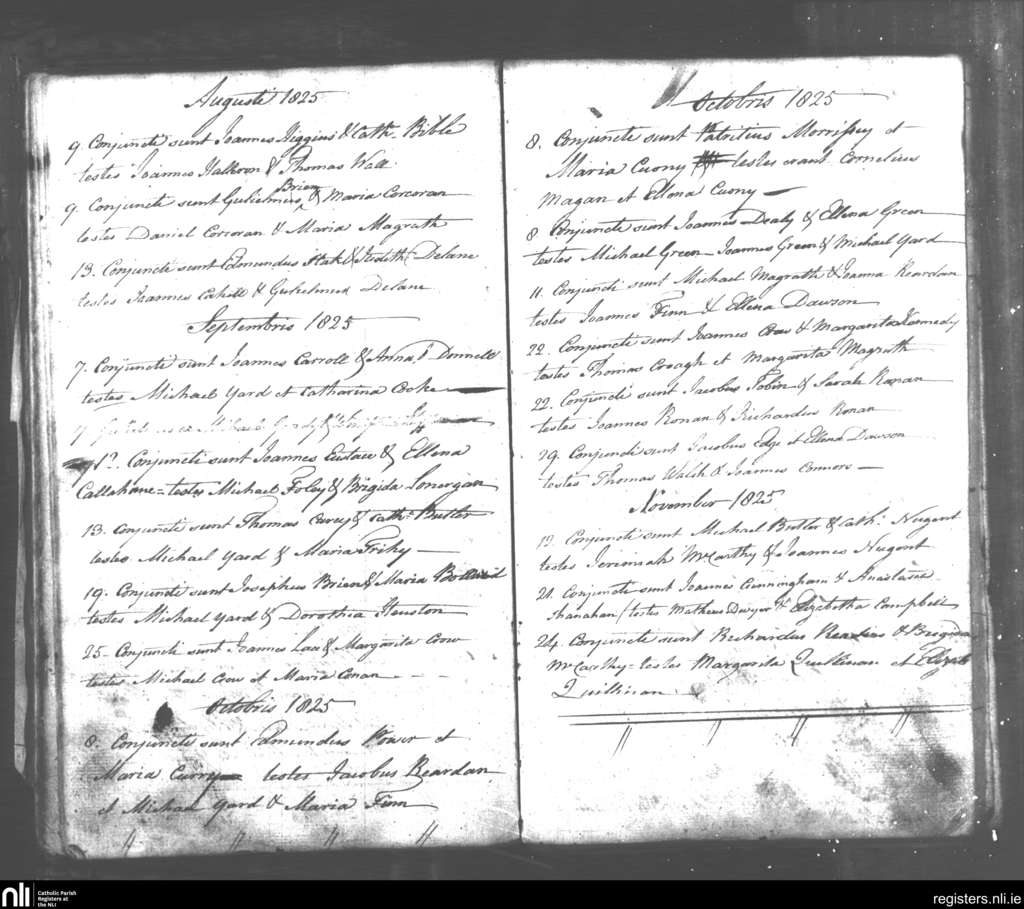 Augusti 1825
9. Conjuncti sunt Joannes Higgins & Cath. Bible
testes Joannes Halloron & Thomas Wall
9. Conjuncti sunt Gulielmus Brien & Maria Corcoran
testes Daniel Corcoran & Maria Magrath
13. Conjuncti sunt Edmundus & Delane
testes Joannes Cahill & Gulielmus Delane
Septembris 1825
7. Conjuncti sunt Joannes Carroll & Anna Donnell
testes Michael Yard et Catharina Cooke
Conjuncti sunt Joannes Eustace & Ellena
Callahane = testes Michael Foley & Brigida Lonergan
13. Conjuncti sunt Thomas & Cath. Butler
testes Michael Yard & Maria
19. Conjuncti sunt Josephus Brien & Maria
testes Michael Yard & Dorothia Heuston
25. Conjuncti sunt Joannes & Margarita Crow
testes Michael Crow et Maria Conan
Octobris 1825
8. Conjuncti sunt Edmundus Power et
Maria Curry testes Jacobus Reardan
et Michael Yard & Maria Finn
Octobris 1825
8. Conjuncti sunt Patritius Morrissey et
Maria Cuony testes erant Cornelius
Magan et Ellena Cuony
8 Conjuncti sunt Joannes Dealy & Ellena Green
testes Michael Green Joannes Green & Michael Yard
11. Conjuncti sunt Michael Magrath & Joanna Reardan
testes Joannes Finn & Ellena Dawson
22. Conjuncti sunt Joannes Crow & Margarita Kennedy
testes Thomas Croagh et Margarita Magrath
22. Conjuncti sunt Jacobus Tobin & Sarah Ronan
testes Joannes Ronan & Richardus Ronan
29. Conjuncti sunt Jacobus Edge et Ellena Dawson
testes Thomas Walsh & Joannes Connors
November 1825
Conjuncti sunt Michael Butler & Cath. Nugent
testes Jeremiah McCarthy & Joannes Nugent
21. Conjuncti sunt Joannes Cunningham & Anastasia
Shanahan (testes Matheus Dwyer & Elizabetha Campbell
24. Conjuncti sunt Richardus & Brigida
McCarthy = testes Margarita Quillinan et
Quillinan
nli
Catholic Parish
Registers at
the NLI
registers.nli.ie